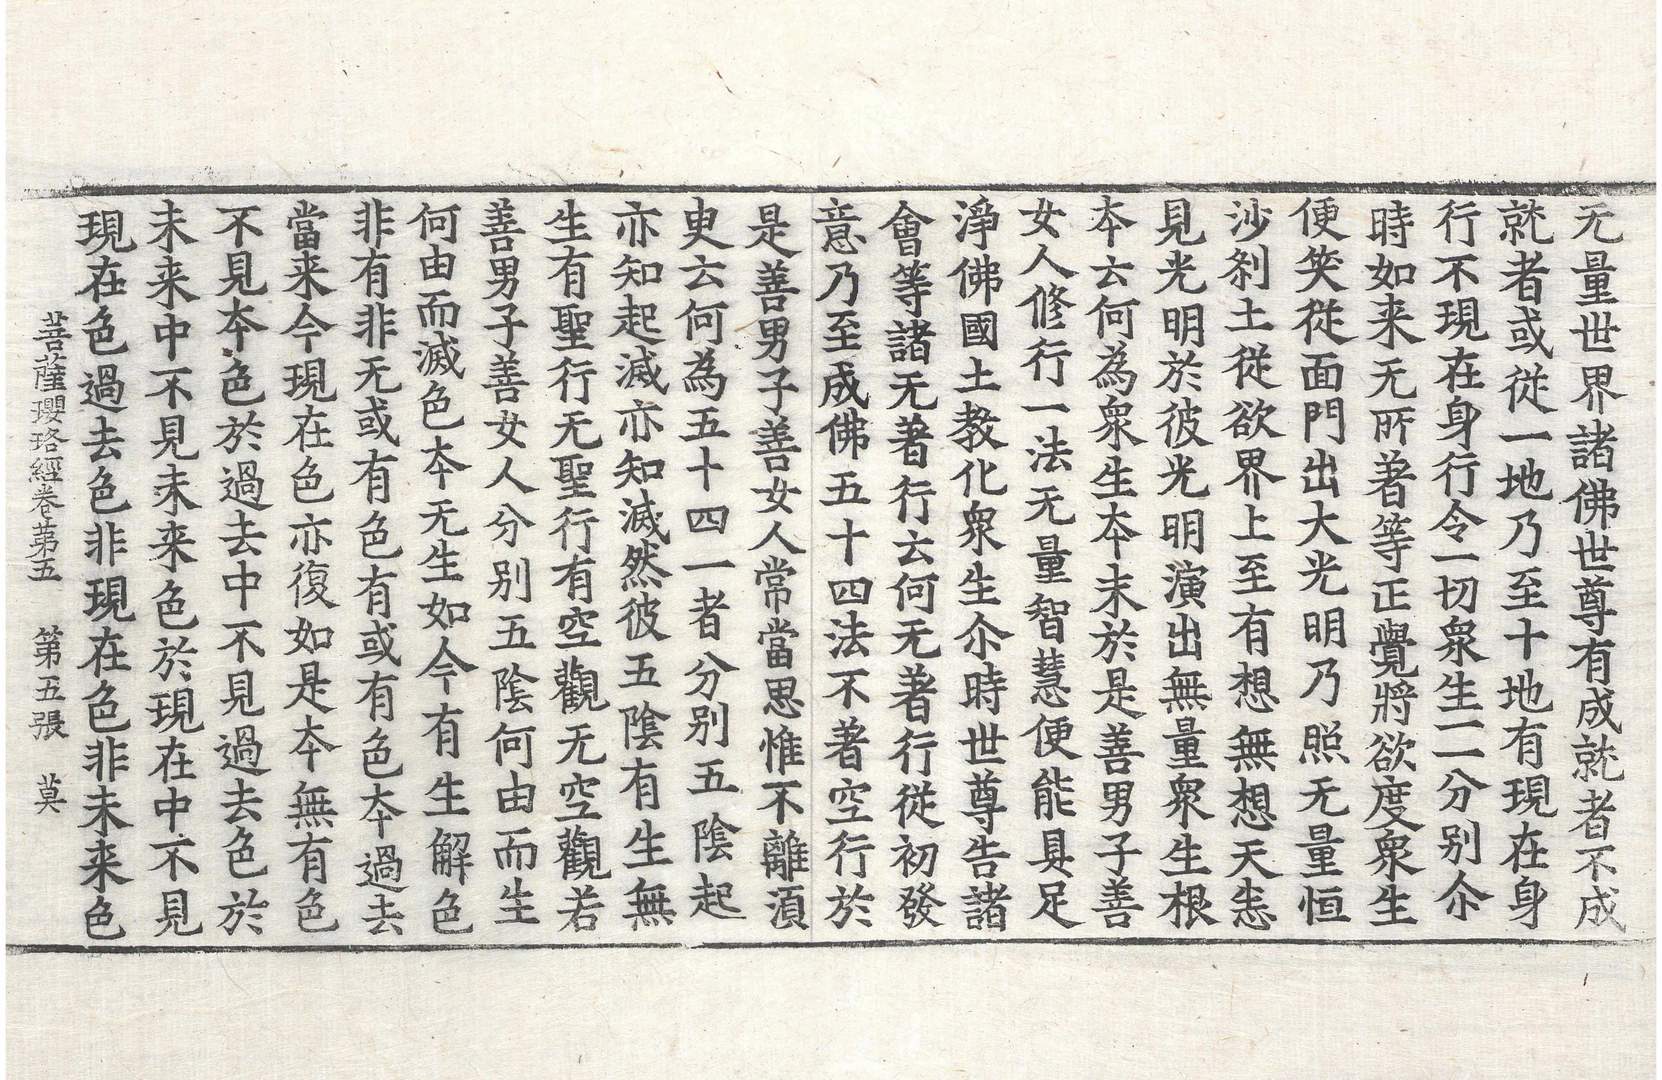 无量世界諸佛世尊有成就者不成
就者或從一地乃至十地有現在身
行不現在身行令一切衆生一一分别尒
時如来无所著等正覺將欲度衆生
便笑從面門出大光明乃照无量恒
沙刹土從欲界上至有想無想天恚
見光明於彼光明演出無量衆生根
夲云何為衆生夲末於是善男子善
女人修行一法无量智慧便能具足
淨佛國土教化衆生尒時世尊告諸
會等諸无著行云何无著行從初發
意乃至成佛五十四法不著空行於
是善男子善女人常當思惟不離湏
臾云何為五十四一者分别五陰起
亦知起滅亦知滅然彼五陰有生無
生有聖行无聖行有空觀无空觀若
善男子善女人分别五陰何由而生
何由而滅色夲无生如今有生解色
非有非无或有色有或有色夲過去
當来今現在色亦復如是夲無有色
不見夲色於過去中不見過去色於
未来中不見未来色於現在中不見
現在色過去色非現在色非未来色
菩薩瓔珞經卷第五 第五張 莫